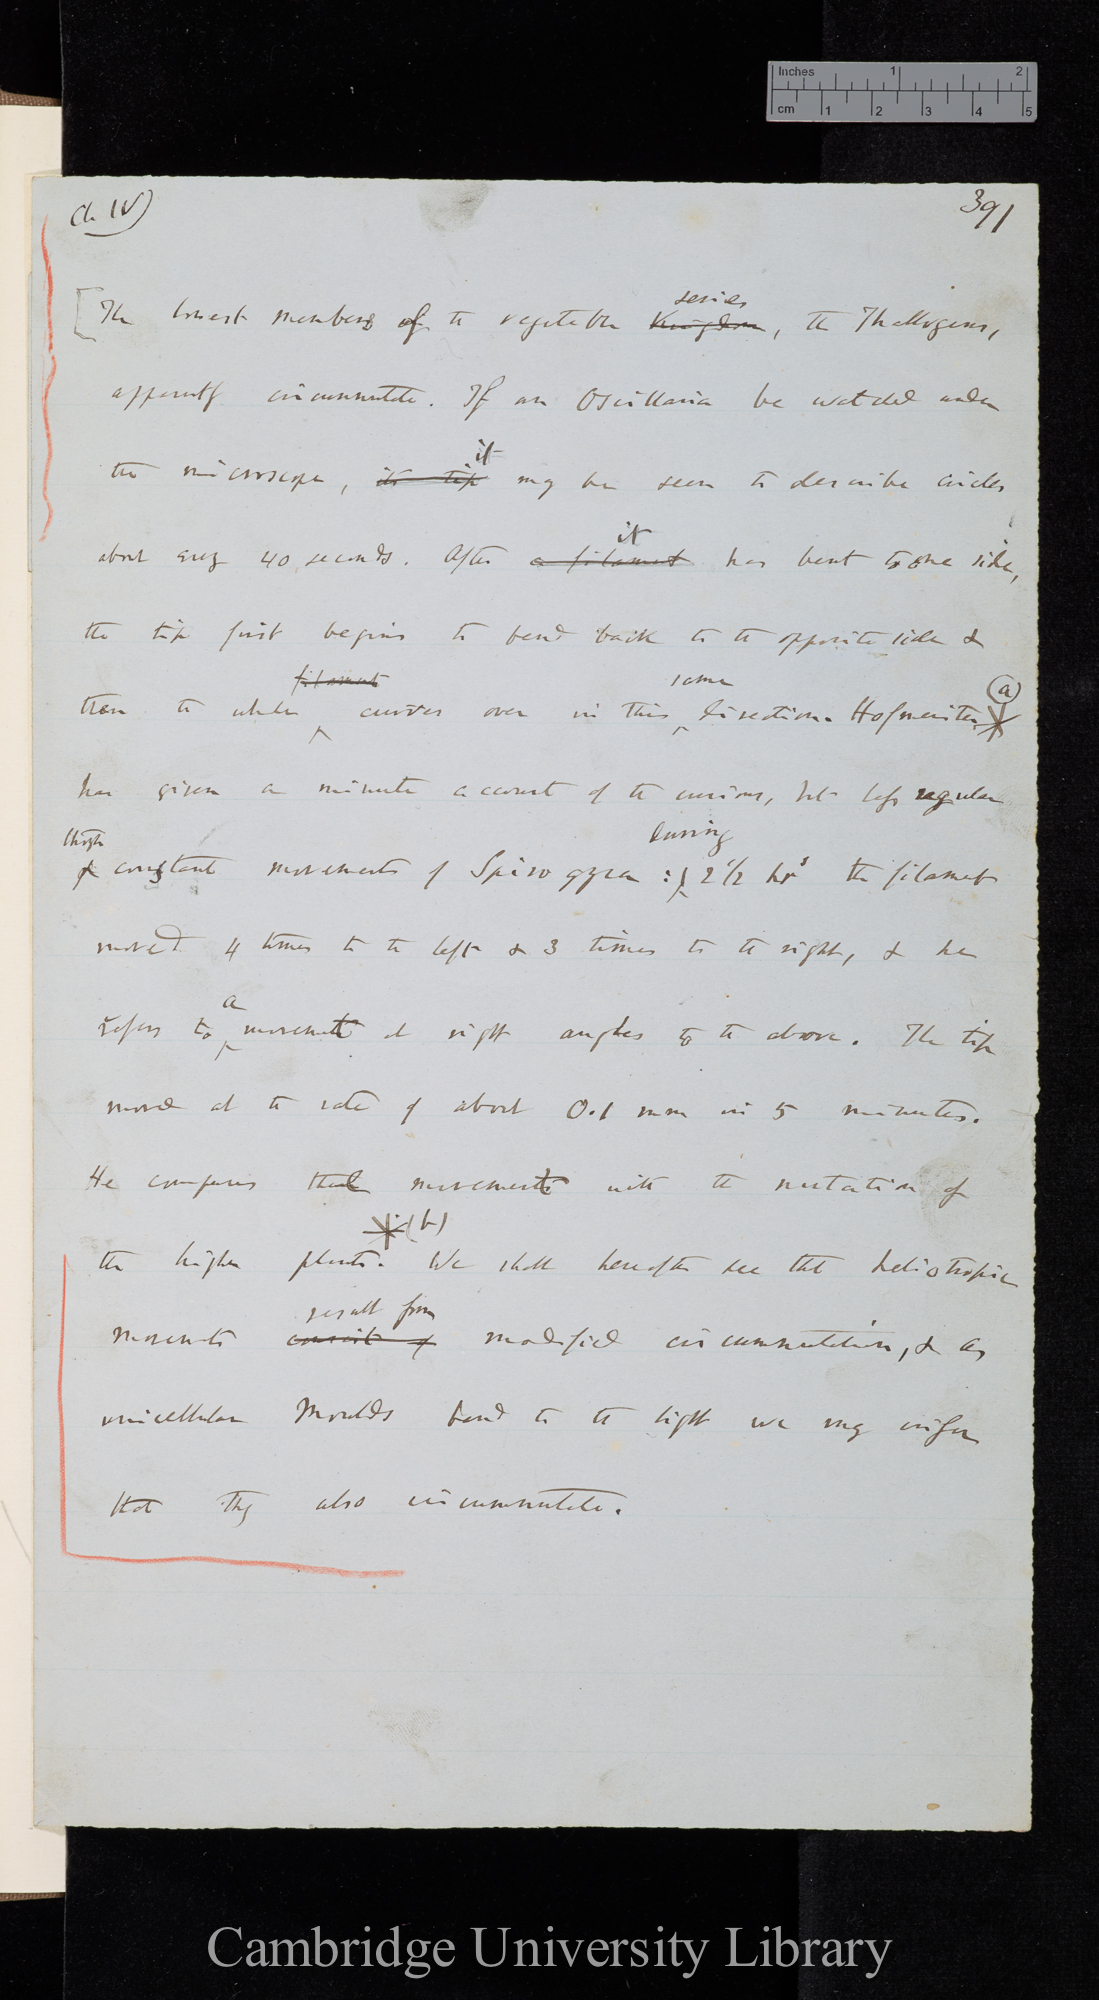 Inches 1 2
cm 1 2 3 4 5
Ch IV)
391
series
[The lowest members of the vegetable Kingdom, the Thallogens,
apparently circumnutate. If an Oscillaria be watched under
it
the microscope, its tip may be seen to describe circles
it
about every 40 seconds. After a filament has bent to one side,
the tip first begins to bend back to the opposite side &
filament same (a)
then the whole curves over in this direction. Hofmeister
has given a minute account of the curious, but less regular
though during
& constant movements of Spirogyra : 2 1/2 hrs the filament
moved 4 times to the left & 3 times to the right, & he
a
refers to movement at right angles to the above. The tip
moved at the rate of about 0.1 mm in 5 minutes.
He compares the movement with the nutation of
(b)
the higher plants. We shall hereafter see that heliotropic
result from
movements consist of modified circumnutation, & as
unicellular Moulds bend to the light we may infer
that they also circumnutate.
Cambridge University Library